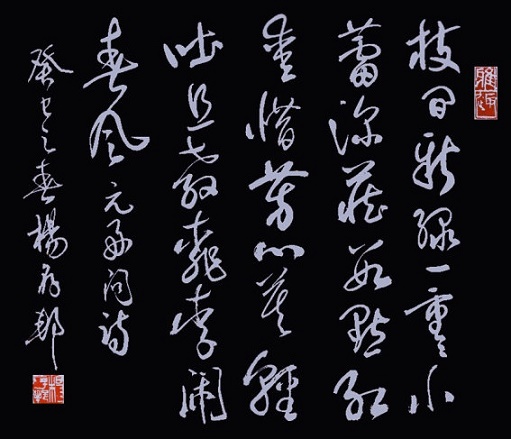 枝間新綠一重重小
蕾深藏數點紅
愛惜芳心莫輕
吐且教桃李鬧
春風 元好問詩
癸巳之春楊